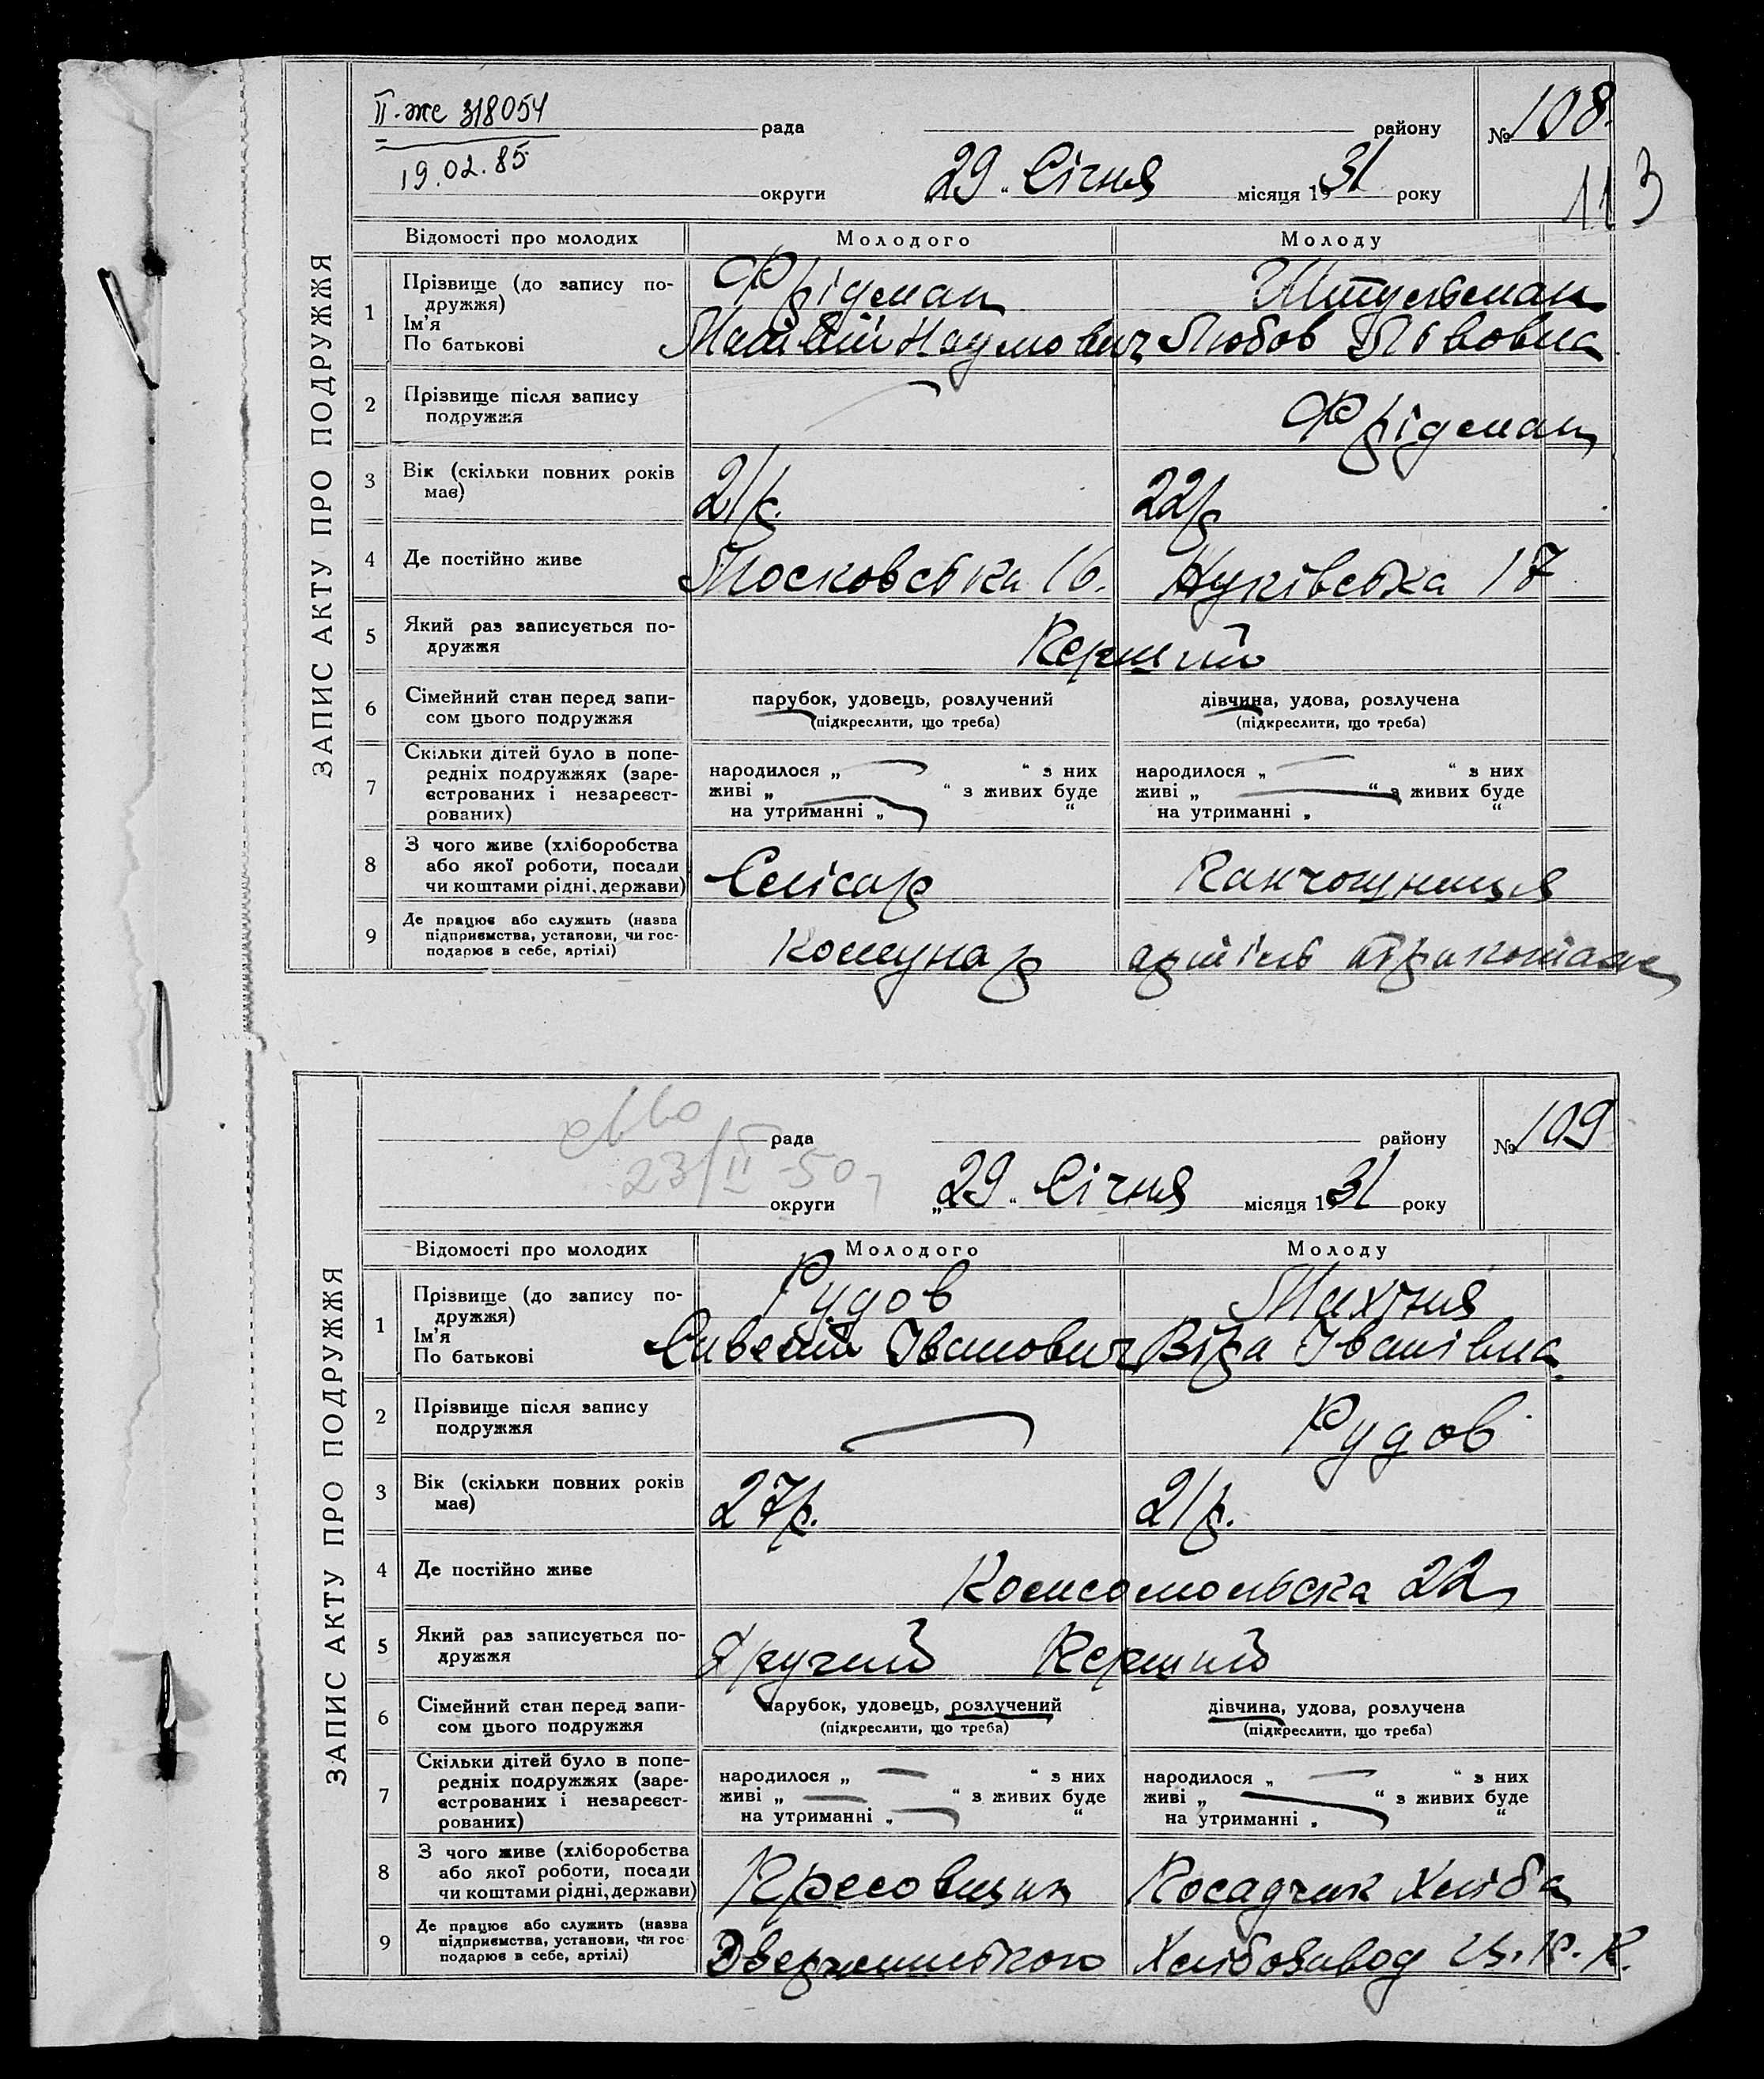 II-же 318054
19.02.85
рада района № 108.
113
округи „29“ Січня місяця 1931 року
ЗАПИС АКТУ ПРО ПОДРУЖЖЯ
Відомості про молодих Молодого Молоду
1 Прізвище (до запису по-
дружжя)
Ім'я
По батькові
Фрідман Штульман
Матвій Наумович Любов Львовна
2 Прізвище після запису
подружжя
Фрідман
3 Вік (скільки повних років
має)
21 р. 22 р
4 Де постійно живе
Московська 16. 17
5 Який раз записується по-
дружжя
Перший
6 Сімейний стан перед запи-
сом цього подружжя
парубок, удовець, розлучений дівчина, удова, розлучена
(підкреслити, що треба) (підкреслити, що треба)
7 Скільки дітей було в попе-
редніх подружжях (заре-
єстрованих і незареєст-
рованих)
народилося „ “ з них народилося „ “ з них
живі „ “ з живих буде живі „ “ з живих буде
на утриманні „ “ на утриманні „ “
8 З чого живе (хліборобства
або якої роботи, посади
чи коштами рідні, держави)
Слісар Панчошниця
9 Де працює або служить (назва
підприємства, установи, чи гос-
подарює в себе, артілі)
Комунар артіль трикотаж
рада району № 109
23/II-50
округи „29“ Січня місяця 1931 року
ЗАПИС АКТУ ПРО ПОДРУЖЖЯ
Відомості про молодих Молодого Молоду
1 Прізвище (до запису по-
дружжя)
Ім'я
По батькові
Рудов Махіня
Іванович Віра Іванівна
2 Прізвище після запису
подружжя
Рудов
3 Вік (скільки повних років
має)
27 р. 21 р.
4 Де постійно живе
Комсомольська 22
5 Який раз записується по-
дружжя
Другий Перший
6 Сімейний стан перед запи-
сом цього подружжя
парубок, удовець, розлучений дівчина, удова, розлучена
(підкреслити, що треба) (підкреслити, що треба)
7 Скільки дітей було в попе-
редніх подружжях (заре-
єстрованих і незареєст-
рованих)
народилося „ “ з них народилося „ “ з них
живі „ “ з живих буде живі „ “ з живих буде
на утриманні „ “ на утриманні „ “
8 З чого живе (хліборобства
або якої роботи, посади
чи коштами рідні, держави)
Пресовщик Посадчик хліба
9 Де працює або служить (назва
підприємства, установи, чи гос
подарює в себе, артілі)
Дзержинського Хлібозавод Ц.Р.К.